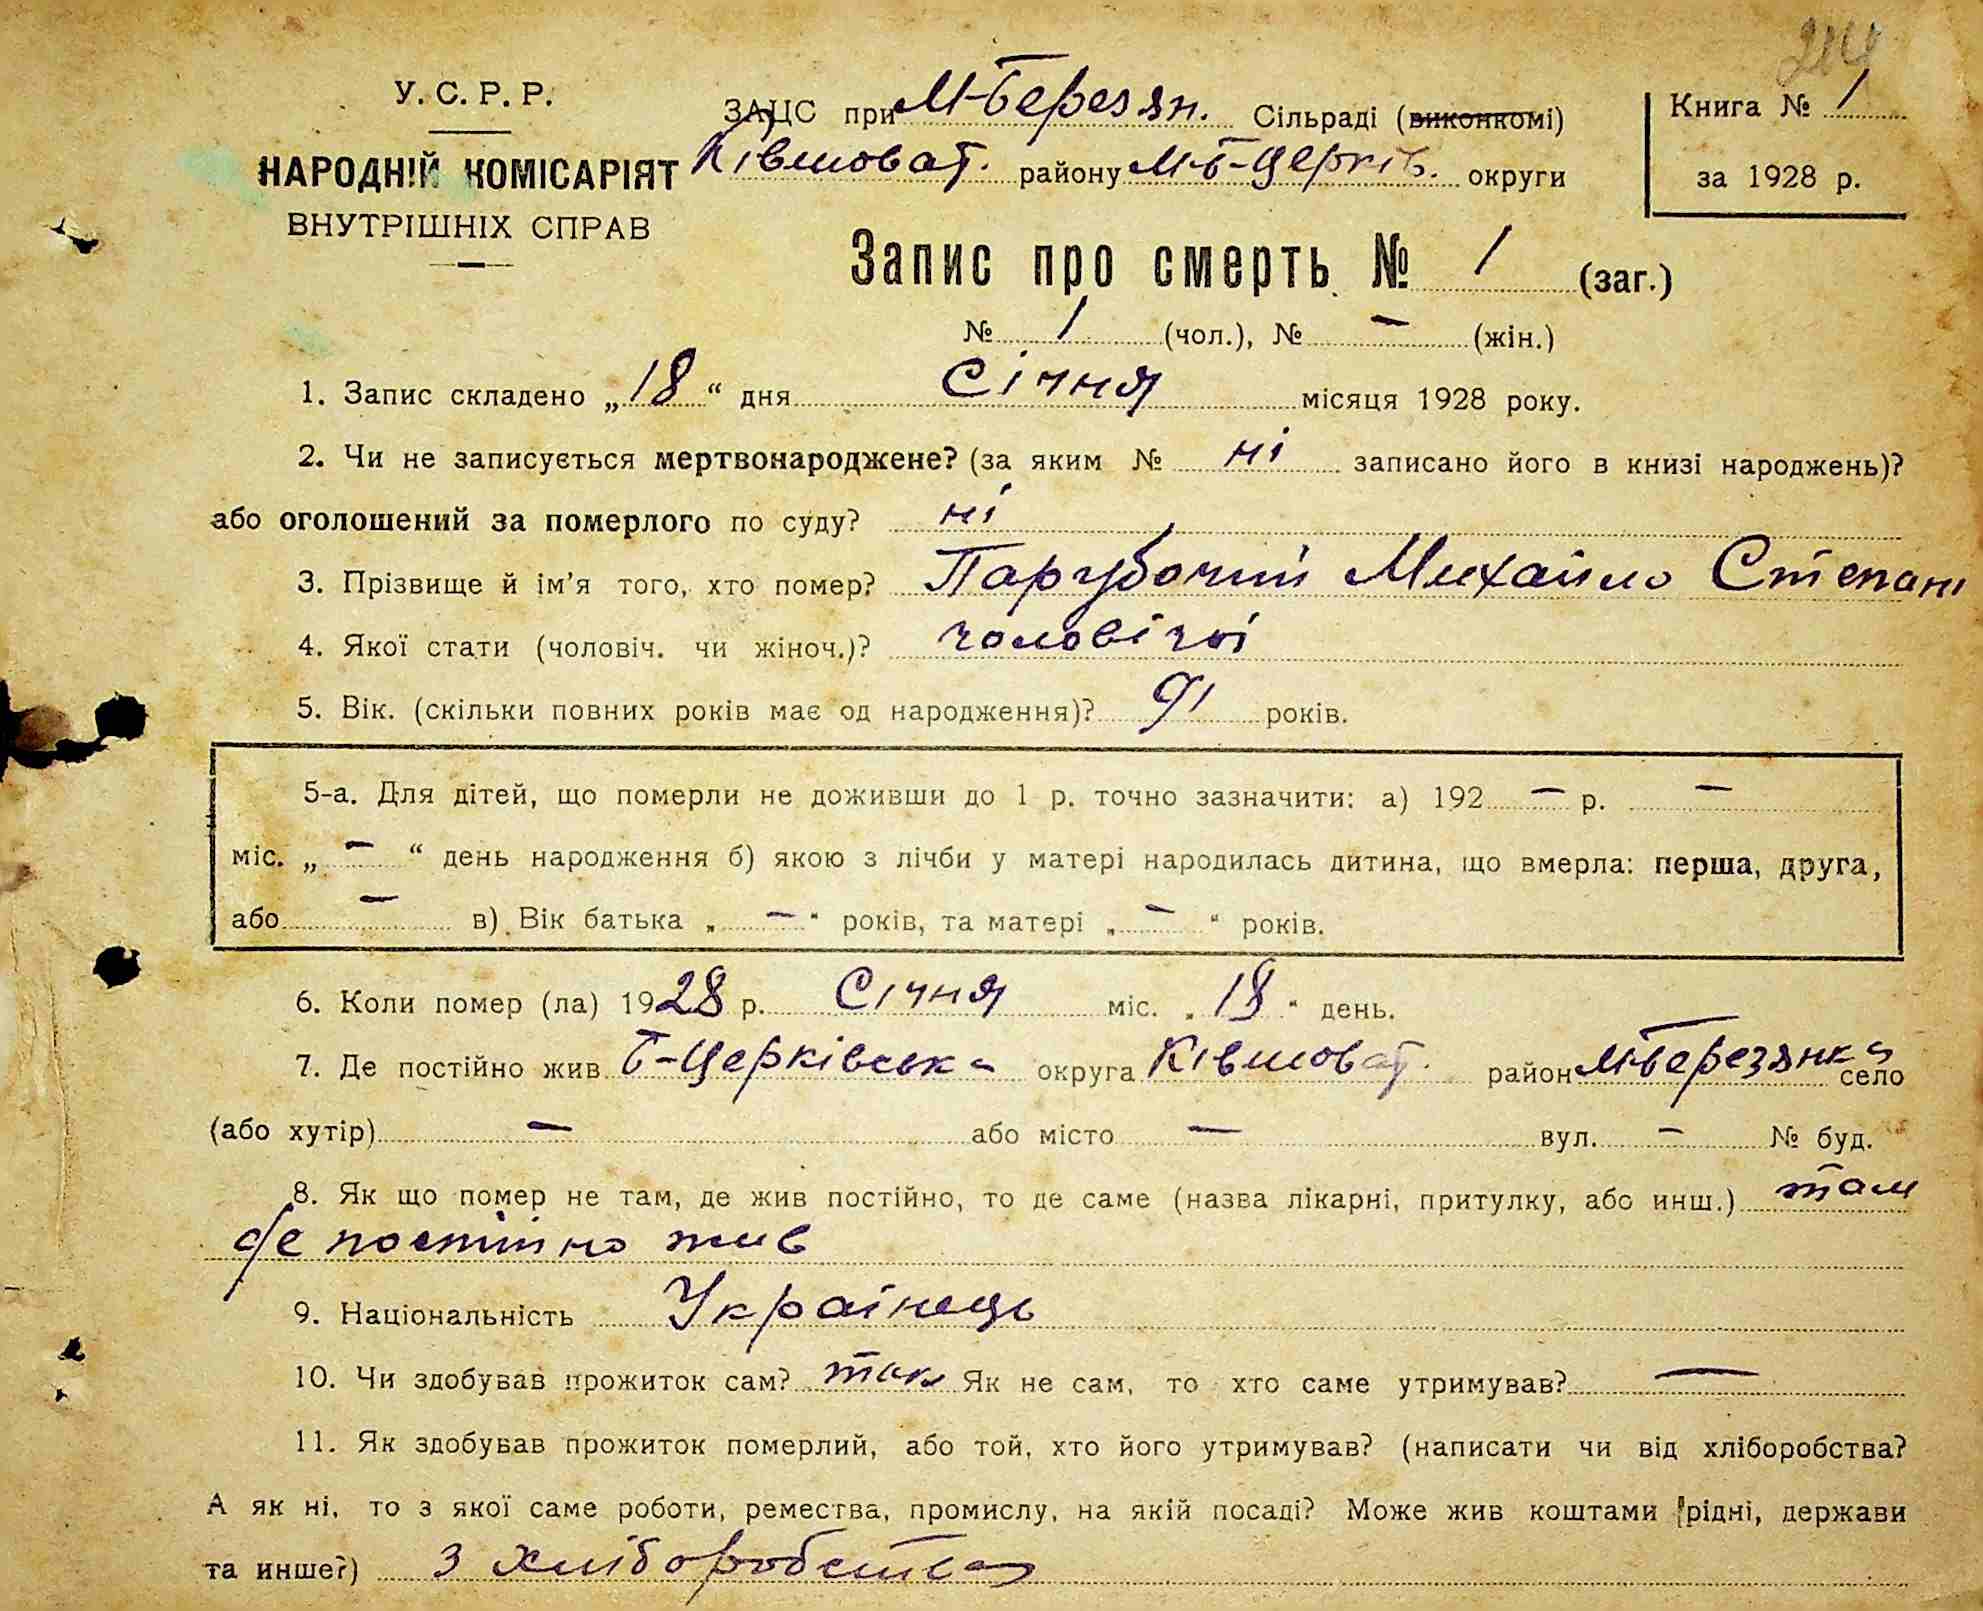 214
У. С. Р. Р.
НАРОДНІЙ КОМІСАРІЯТ
ВНУТРІШНІХ СПРАВ
ЗАЦС при М-Березян. Сільраді (виконкомі)
Ківшоват. району М-Б-Церків. округи
Книга № 1
за 1928 р.
Запис про смерть № 1 (заг.)
№ 1 (чол.), № — (жін.)
1. Запис складено „18“ дня Січня місяця 1928 року.
2. Чи не записується мертвонароджене? (за яким № ні записано його в книзі народжень)?
або оголошений за померлого по суду? ні
3. Прізвище й ім’я того, хто помер? Парубочий Михайло Степані
4. Якої стати (чоловіч. чи жіноч.)? чоловічої
5. Вік. (скільки повних років має од народження)? 91 років.
5-а. Для дітей, що померли не доживши до 1 р. точно зазначити: а) 192 — р. —
міс. „ — “ день народження б) якою з лічби у матері народилась дитина, що вмерла: перша, друга,
або — в) Вік батька „ — “ років, та матері „ — “ років.
6. Коли помер (ла) 1928 р. Січня міс. „18“ день.
7. Де постійно жив Б-Церківська округа Ківшоват. район М-Березянка село
(або хутір) — або місто — вул. — № буд.
8. Як що помер не там, де жив постійно, то де саме (назва лікарні, притулку, або инш.) там
де постійно жив
9. Національність Українець
10. Чи здобував прожиток сам? так Як не сам, то хто саме утримував? —
11. Як здобував прожиток померлий, або той, хто його утримував? (написати чи від хліборобства?
А як ні, то з якої саме роботи, ремества, промислу, на якій посаді? Може жив коштами рідні, держави
та инше?) З хліборобства